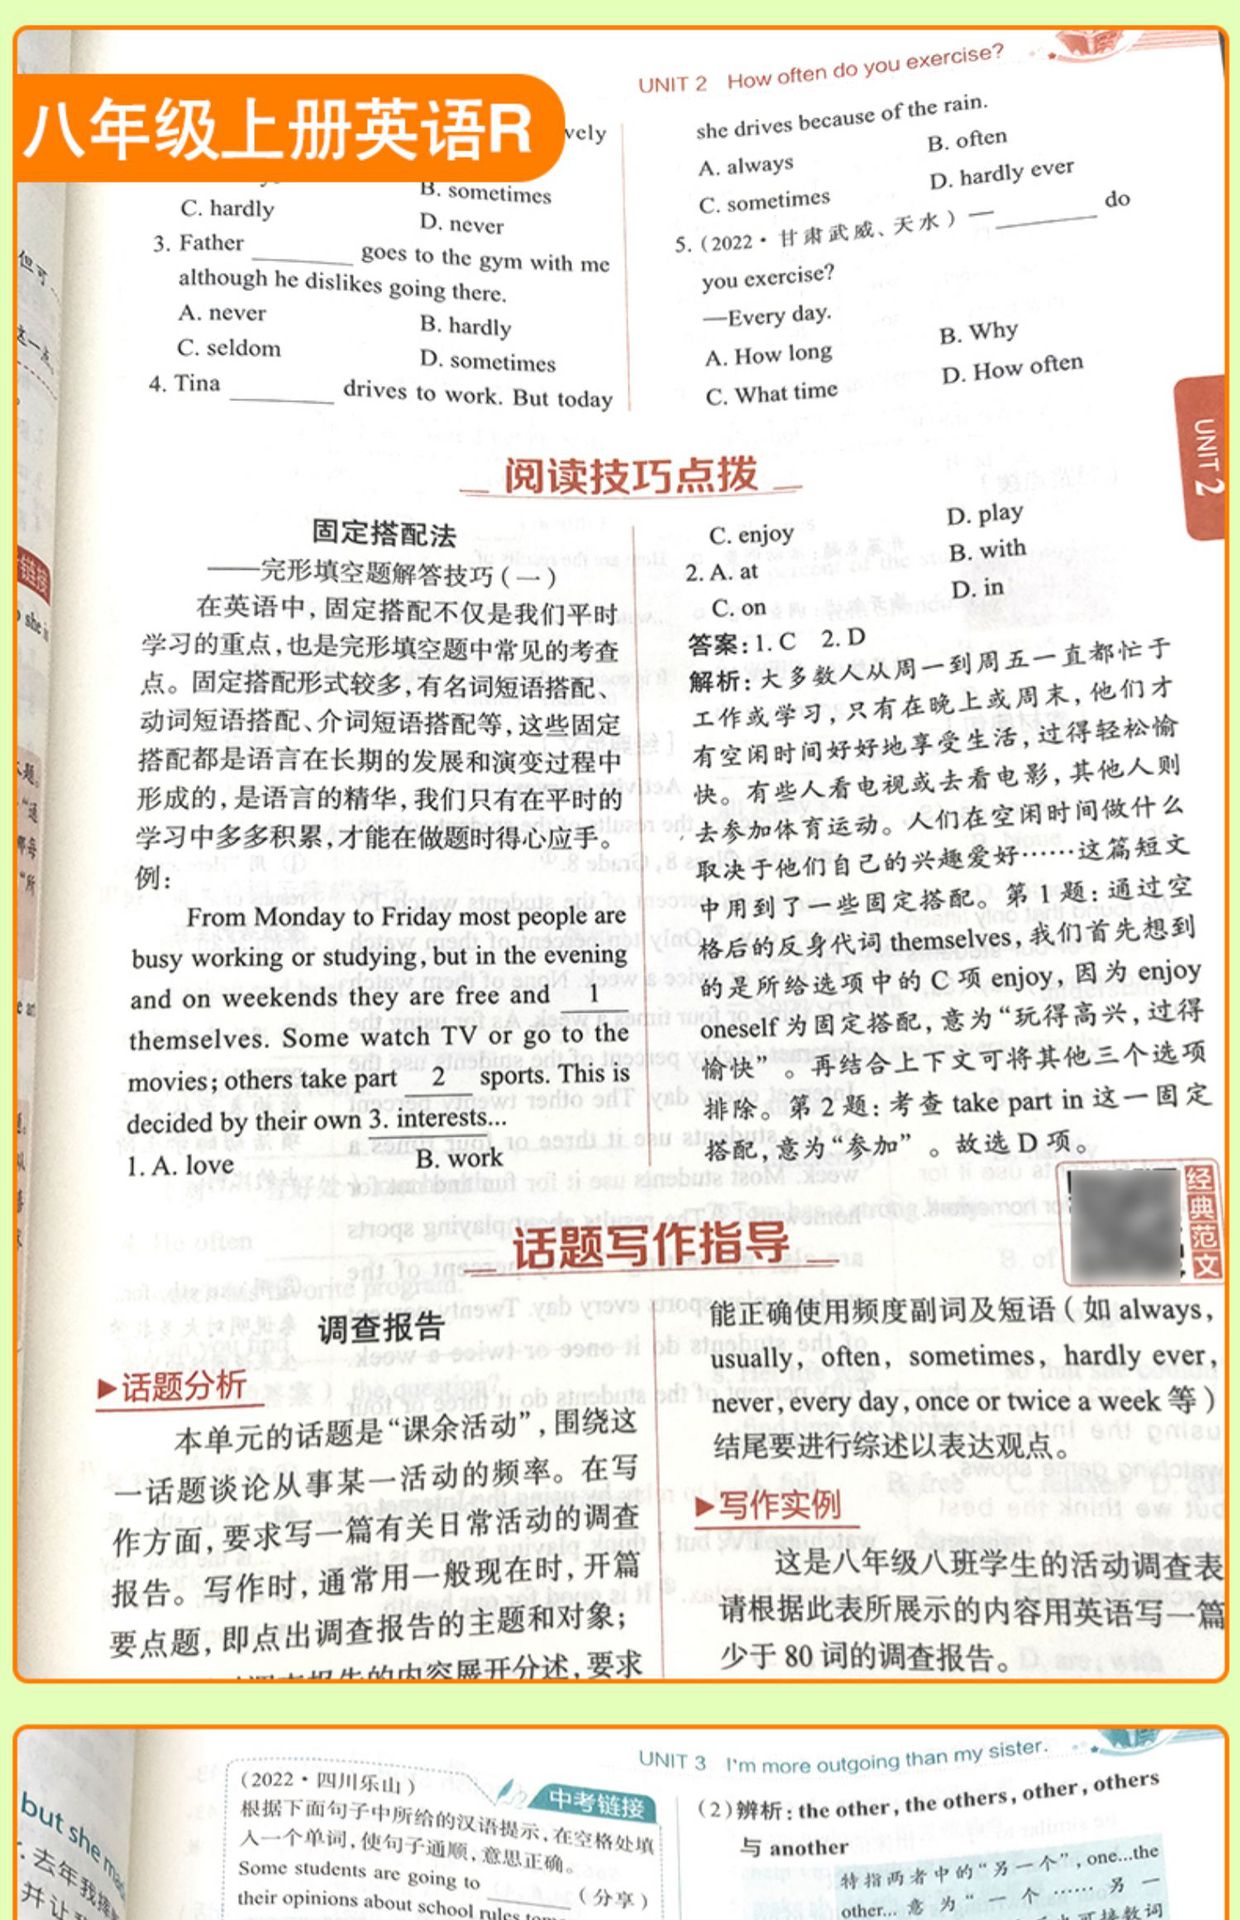 八年级上册英语R
UNIT 2 How often do you exercise?
vely
B. sometimes
C. hardly
D. never
3. Father ________ goes to the gym with me
although he dislikes going there.
A. never
B. hardly
C. seldom
D. sometimes
4. Tina ________ drives to work. But today
she drives because of the rain.
A. always
B. often
C. sometimes
D. hardly ever
5. (2022·甘肃武威、天水) — ________ do
you exercise?
—Every day.
A. How long
B. Why
C. What time
D. How often
UNIT 2
阅读技巧点拨
固定搭配法
——完形填空题解答技巧(一)
在英语中,固定搭配不仅是我们平时
学习的重点,也是完形填空题中常见的考查
点。固定搭配形式较多,有名词短语搭配、
动词短语搭配、介词短语搭配等,这些固定
搭配都是语言在长期的发展和演变过程中
形成的,是语言的精华,我们只有在平时的
学习中多多积累,才能在做题时得心应手。
例:
From Monday to Friday most people are
busy working or studying, but in the evening
and on weekends they are free and 1
themselves. Some watch TV or go to the
movies; others take part 2 sports. This is
decided by their own 3. interests...
1. A. love
B. work
C. enjoy
D. play
2. A. at
B. with
C. on
D. in
答案:1. C 2. D
解析:大多数人从周一到周五一直都忙于
工作或学习,只有在晚上或周末,他们才
有空闲时间好好地享受生活,过得轻松愉
快。有些人看电视或去看电影,其他人则
去参加体育运动。人们在空闲时间做什么
取决于他们自己的兴趣爱好……这篇短文
中用到了一些固定搭配。第1题:通过空
格后的反身代词 themselves,我们首先想到
的是所给选项中的 C 项 enjoy,因为 enjoy
oneself 为固定搭配,意为“玩得高兴,过得
愉快”。再结合上下文可将其他三个选项
排除。第2题:考查 take part in 这一固定
搭配,意为“参加”。故选 D 项。
经典范文
话题写作指导
调查报告
▶话题分析
本单元的话题是“课余活动”,围绕这
一话题谈论从事某一活动的频率。在写
作方面,要求写一篇有关日常活动的调查
报告。写作时,通常用一般现在时,开篇
要点题,即点出调查报告的主题和对象;
调查报告的内容展开分述,要求
能正确使用频度副词及短语(如 always,
usually, often, sometimes, hardly ever,
never, every day, once or twice a week 等)
结尾要进行综述以表达观点。
▶写作实例
这是八年级八班学生的活动调查表
请根据此表所展示的内容用英语写一篇
少于 80 词的调查报告。
UNIT 3 I'm more outgoing than my sister.
but she
去年我摔
并让
(2022·四川乐山)
中考链接
根据下面句子中所给的汉语提示,在空格处填
入一个单词,使句子通顺,意思正确。
Some students are going to ________ (分享)
their opinions about school rules
(2)辨析:the other, the others, other, others
与 another
特指两者中的“另一个”, one...the
other... 意为“一个……另一